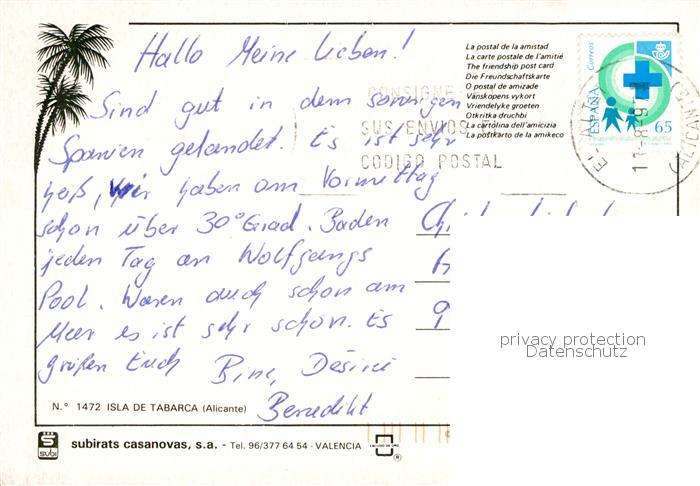 Hallo Meine Lieben!
Sind gut in dem sonnigen
Spanien gelandet. Es ist sehr
heiß, wir haben am Vormittag
schon über 30° Grad. Baden
jeden Tag an Wolfgangs
Pool. Waren auch schon am
Meer es ist sehr schön. Es
grüßen Euch Bine, Désirée
Benedikt
La postal de la amistad
La carte postale de l'amitié
The friendship post card
Die Freundschaftskarte
O postal de amizade
Vänskapens vykort
Vriendelyke groeten
Otkritka druchbi
La cartolina dell'amicizia
La postkarto de la amikeco
CONSIGNE
SUS ENVIOS EL
CODIGO POSTAL
Correos
ESPAÑA
65
privacy protection
Datenschutz
N.° 1472 ISLA DE TABARCA (Alicante)
subi
subirats casanovas, s.a. - Tel. 96/377 64 54 - VALENCIA